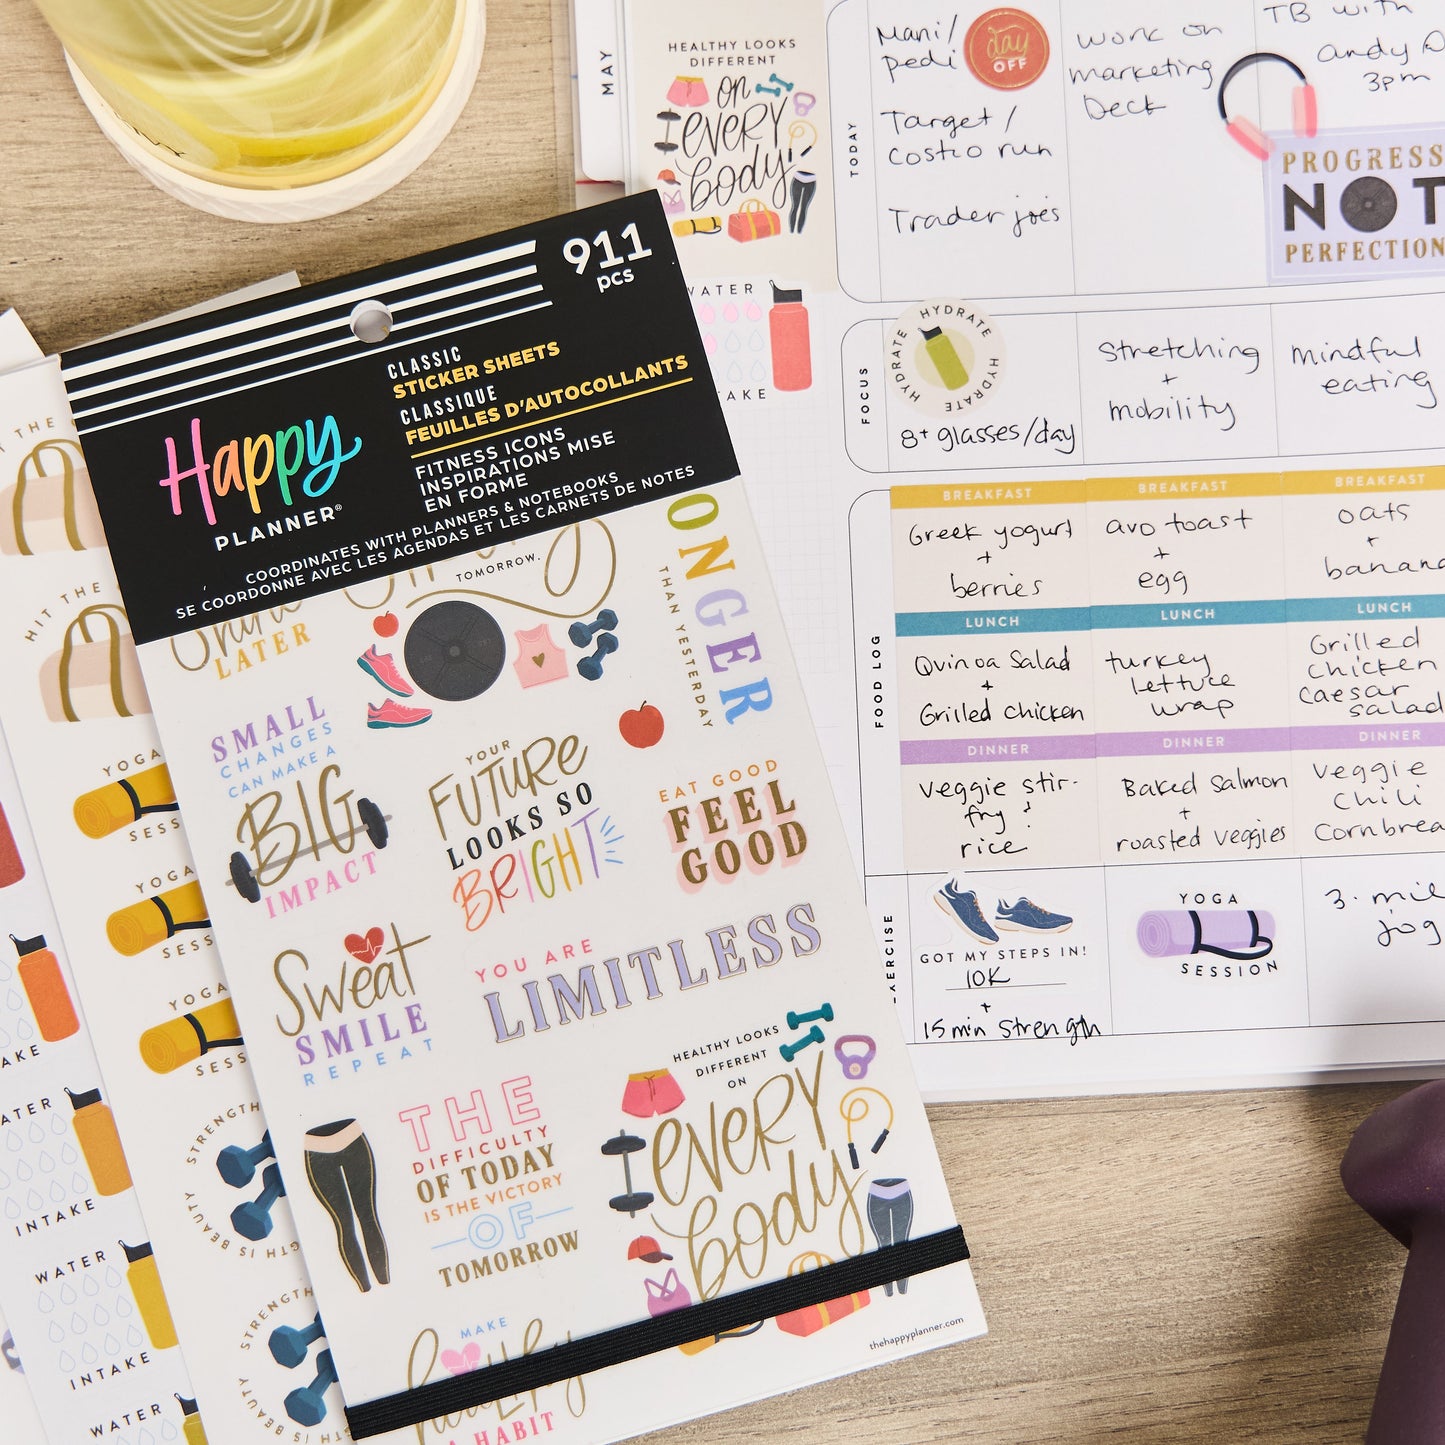 MAY
HEALTHY LOOKS
DIFFERENT
on
EVERY
body
WATER
TAKE
TODAY
Mani/
pedi
day
OFF
Target /
Costco run
Trader joe's
work on
marketing
Deck
TB with
andy
3pm
PROGRESS
NOT
PERFECTION
FOCUS
HYDRATE HYDRATE HYDRATE
8+ glasses/day
Stretching
+
mobility
mindful
eating
FOOD LOG
BREAKFAST
Greek yogurt
+
berries
BREAKFAST
avo toast
+
egg
BREAKFAST
oats
+
banana
LUNCH
Quinoa Salad
+
Grilled chicken
LUNCH
turkey
lettuce
wrap
LUNCH
Grilled
chicken
caesar
salad
DINNER
veggie stir-
fry &
rice
DINNER
Baked Salmon
+
roasted veggies
DINNER
veggie
chili
cornbrea
EXERCISE
GOT MY STEPS IN!
10K
+
15 min strength
YOGA
SESSION
3. mile
jog
911
pcs
CLASSIC
STICKER SHEETS
CLASSIQUE
FEUILLES D'AUTOCOLLANTS
FITNESS ICONS
INSPIRATIONS MISE
EN FORME
Happy
PLANNER®
COORDINATES WITH PLANNERS & NOTEBOOKS
SE COORDONNE AVEC LES AGENDAS ET LES CARNETS DE NOTES
TOMORROW.
LATER
ONGER
THAN YESTERDAY
SMALL
CHANGES
CAN MAKE A
BIG
IMPACT
YOUR
FUTURE
LOOKS SO
BRIGHT
EAT GOOD
FEEL
GOOD
Sweat
SMILE
REPEAT
YOU ARE
LIMITLESS
THE
DIFFICULTY
OF TODAY
IS THE VICTORY
OF
TOMORROW
HEALTHY LOOKS
DIFFERENT
ON
EVERY
body
MAKE
A HABIT
thehappyplanner.com
HIT THE
YOGA
SESS
YOGA
SESS
YOGA
SESS
STRENGTH
GTH IS BEAUTY
STRENGTH
TH IS BEAUTY
AKE
ATER
INTAKE
WATER
INTAKE
WATER